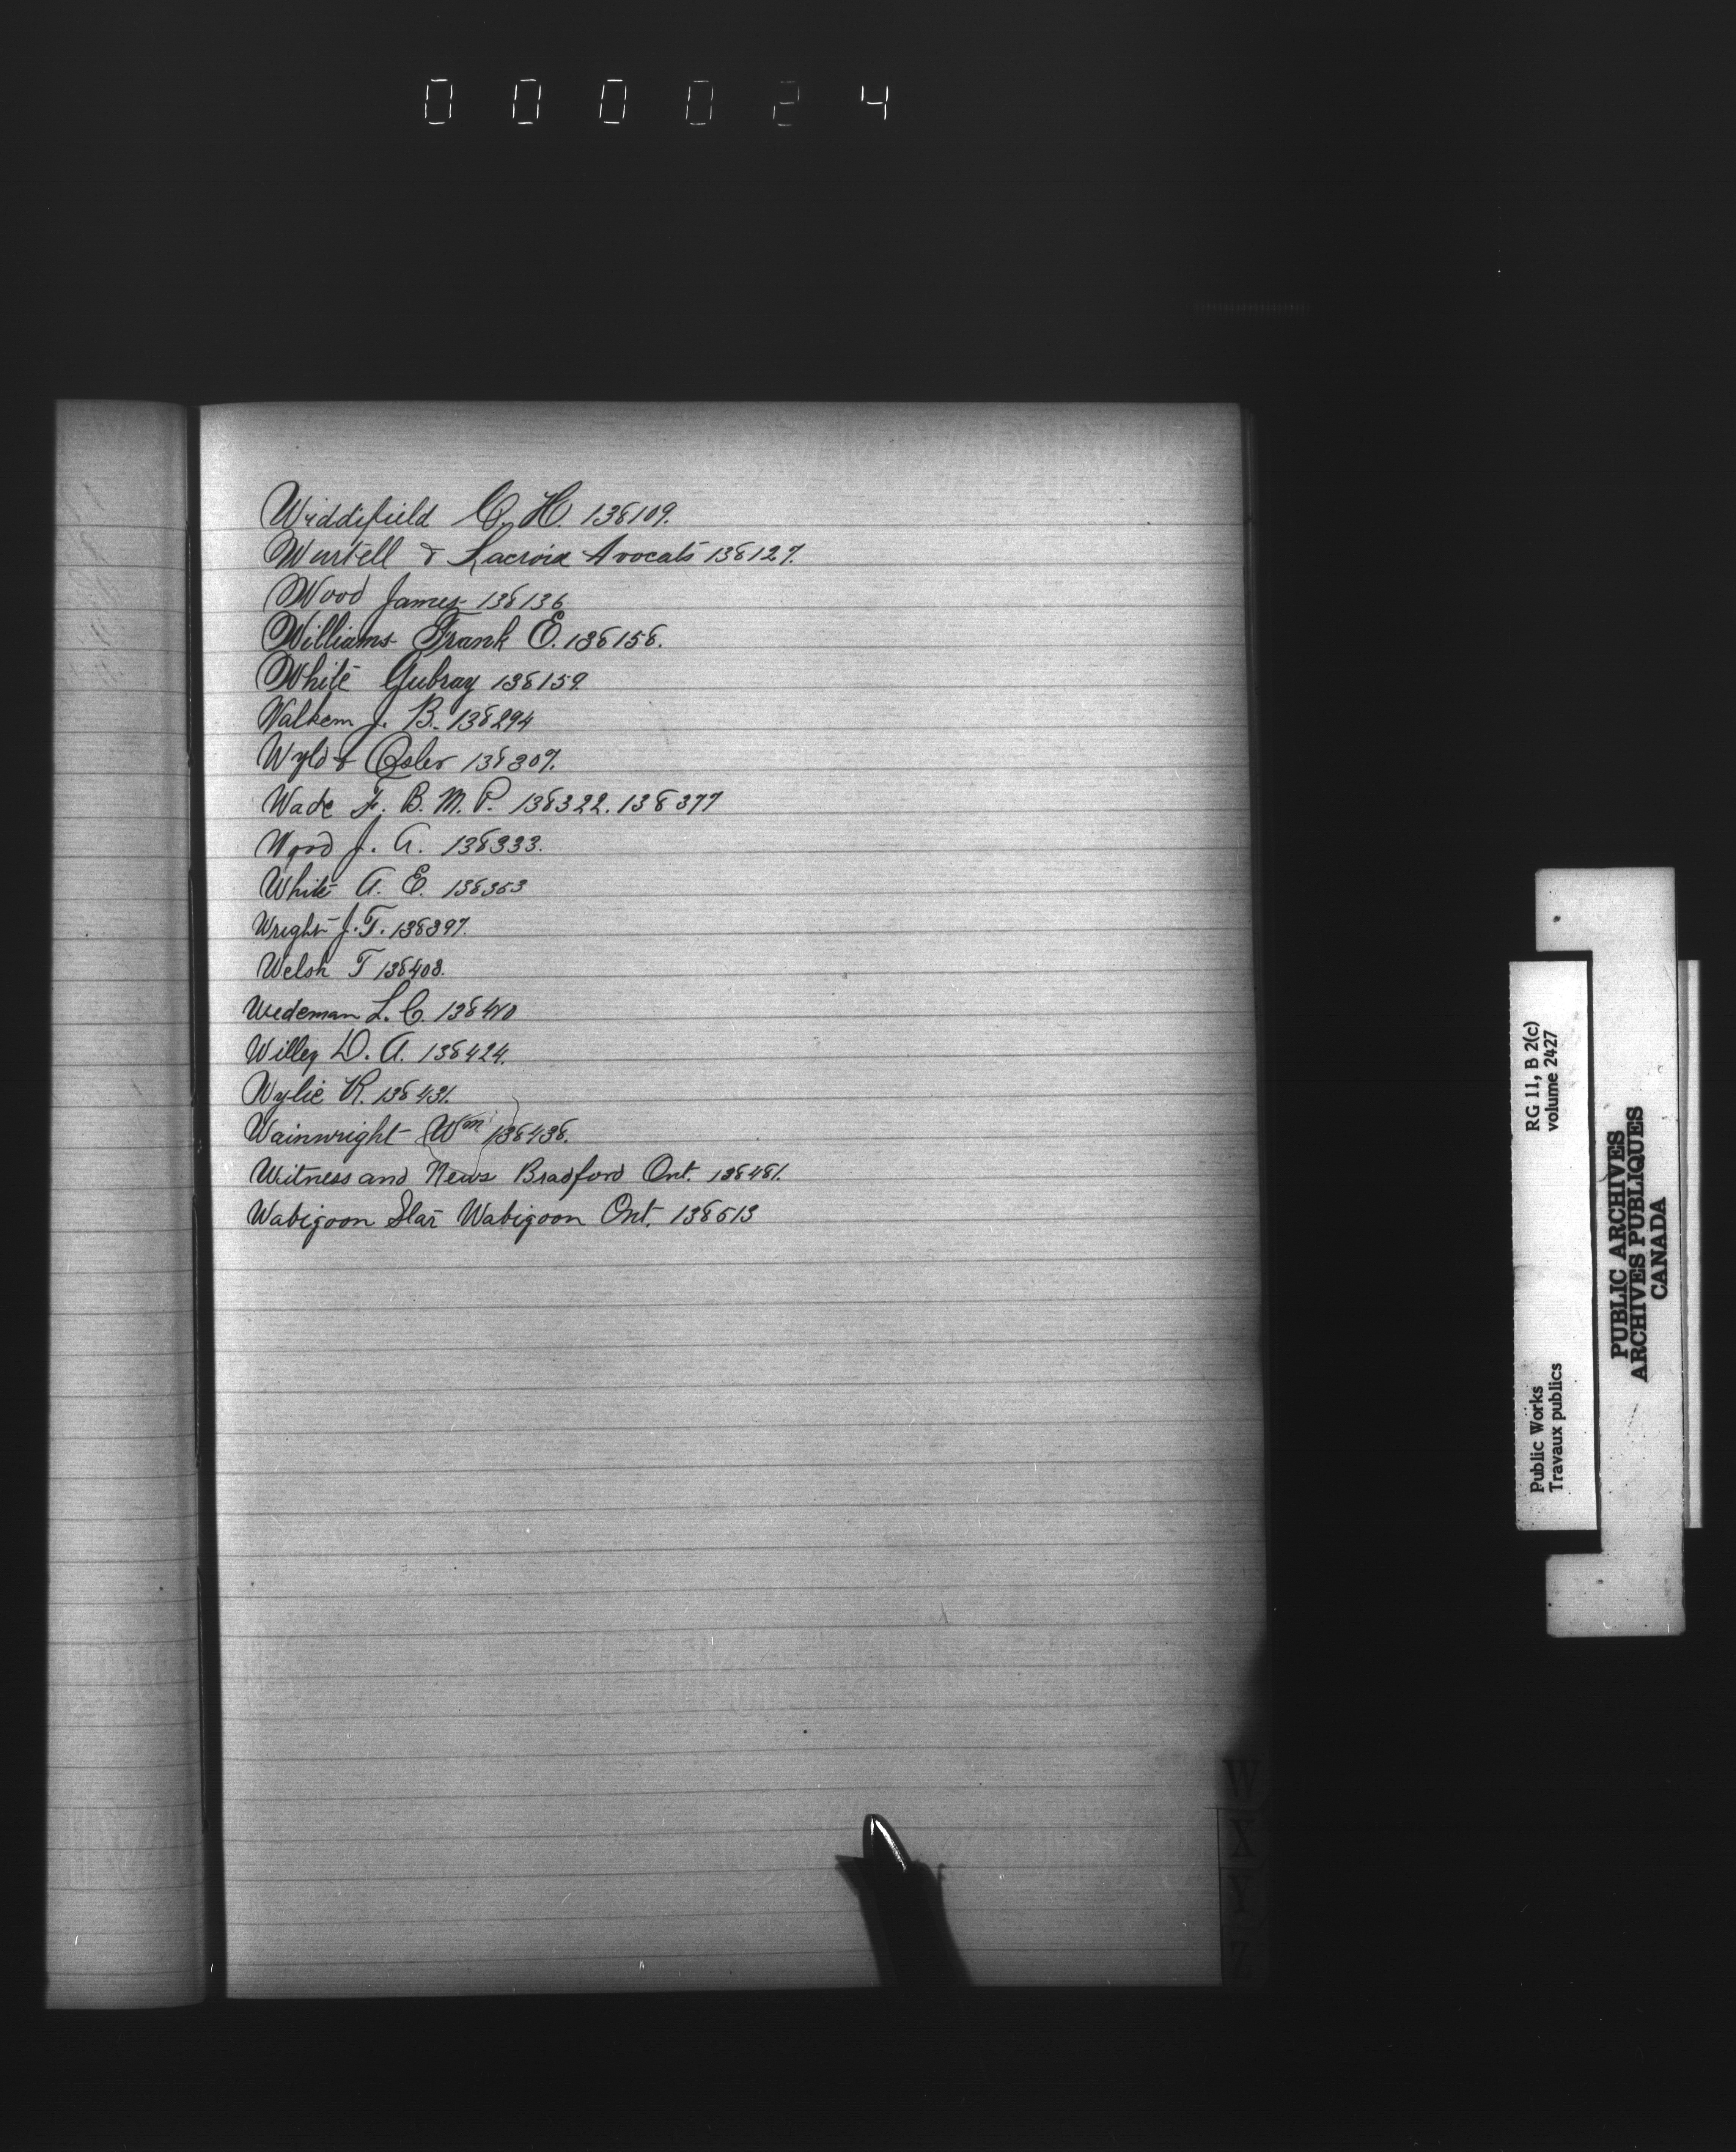 000024
Widdifield C. H. 138109.
Wurtell & Lacroix Avocats 138127.
Wood James 138136
Williams Frank E. 138158.
White Gubray 138159.
Walkem J. B. 138294
Wyld & Osler 138307.
Wade F. B. M. P. 138322. 138377
Wood J. A. 138333.
White A. E. 138353
Wright J. T. 138397.
Welsh T 138408.
Wiedeman L. C.
Willey D. A. 138424.
Wylie R. 138431.
Wainwright Wm 138438.
Witness and News Bradford Ont. 138481.
Wabigoon Star Wabigoon Ont. 138513
W
X
Y
Z
RG 11, B 2(c)
volume 2427
Public Works
Travaux publics
PUBLIC ARCHIVES
ARCHIVES PUBLIQUES
CANADA